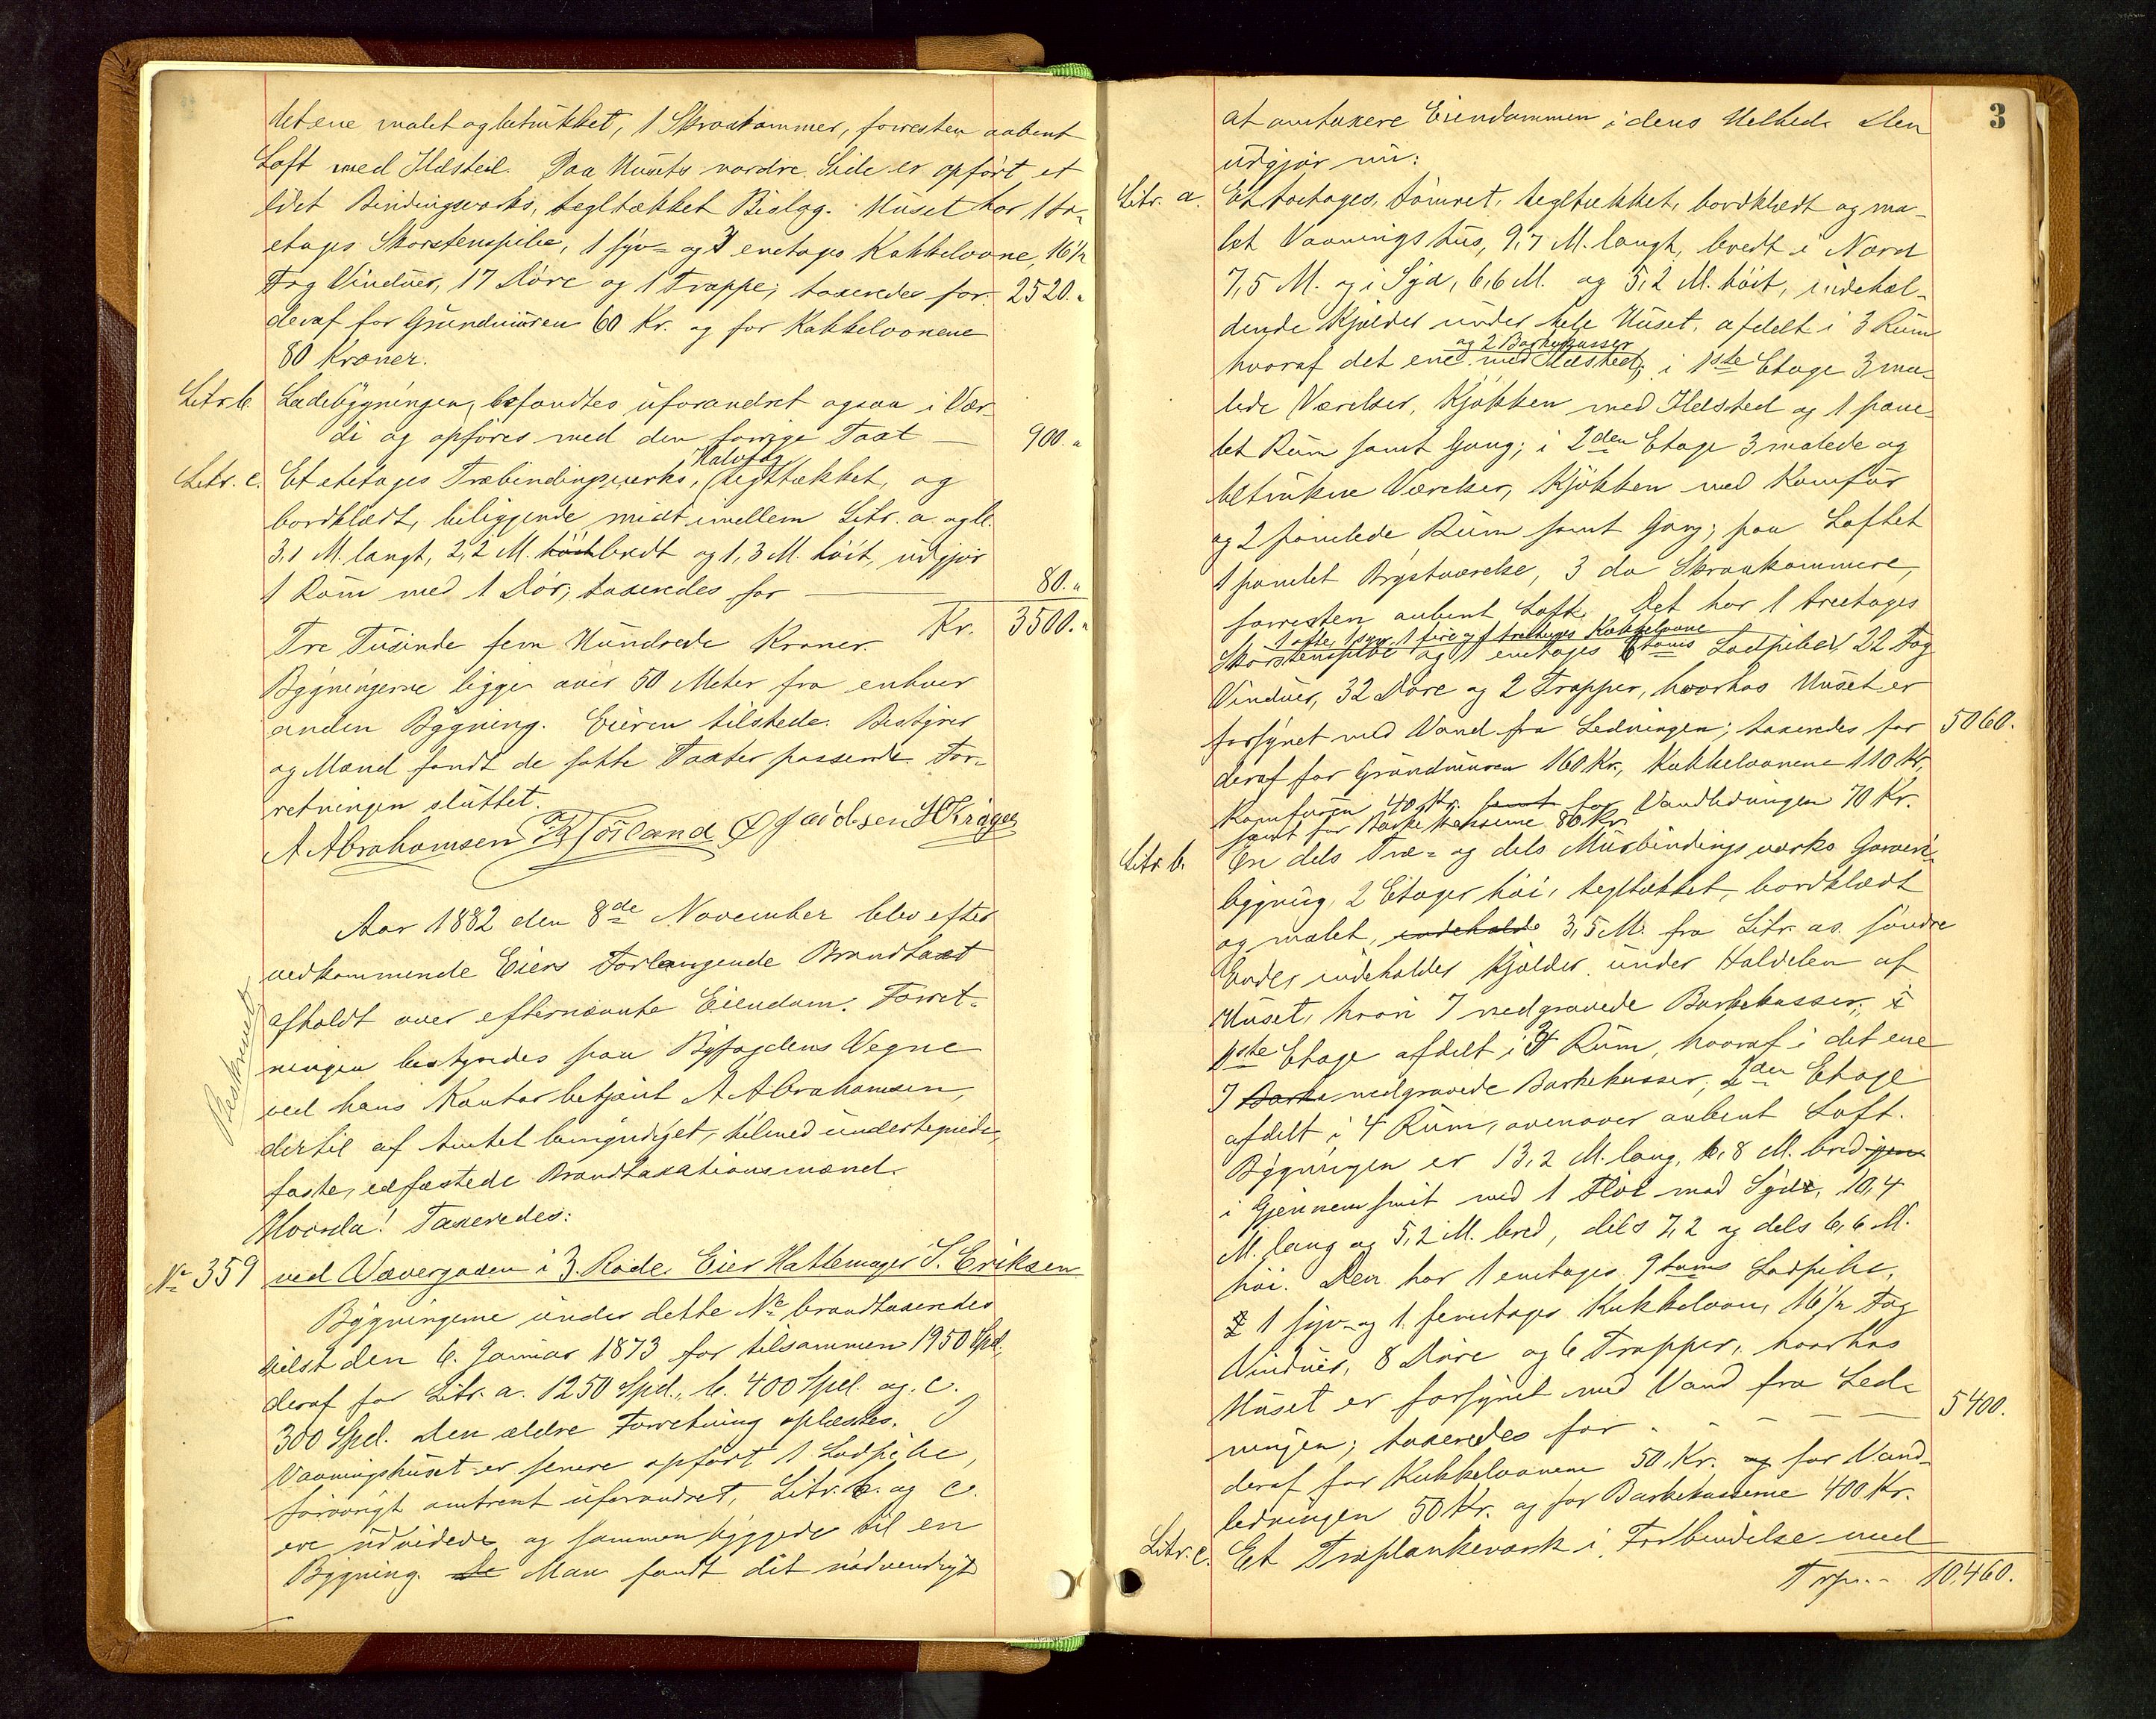 det ene malet og betrukket, 1 Skraakammer, forresten aabent
Loft med Ildsted. Paa Husets nordre Side er opført et
lidet Bindingsverks, tegltækket Bislag. Huset har 1 to-
etages Skorstenspibe, 1 syv- og 3 enetages Kakkelovne, 16½
Fag Vinduer, 17 Döre og 1 Trappe; taxeredes for 2520.
deraf for Grundmuren 60 Kr. og for Kakkelovnene
80 Kroner.
Litr. b. Ladebygningen, befandtes uforandret ogsaa i Vær-
di og opføres med den forrige Taxt — 900.
Halvtag
Litr. c. Et etetages Træbindingsverks, tegltækket, og
bordklædt, beliggende midt imellem Litr. a. og b.
3,1 M. langt, 2,2 M. höit bredt og 1,3 M. höit, udgjör
1 Rum med 1 Dör; taxeredes for — 80.
Kr. 3500.
Tre Tusinde fem Hundrede Kroner.
Bygningerne ligger over 50 Meter fra enhver
anden Bygning. Eieren tilstede. Bestyrer
og Mænd fandt de satte Taxter passende. For-
retningen sluttet.
A Abrahamsen
Aar 1882 den 8de November blev efter
vedkommende Eiers Forlangende Brandtaxt
afholdt over efternævnte Eiendom. Forret-
Beskrevet
ningen bestyredes paa Byfogdens Vegne
ved hans Kontorbetjent A Abrahamsen,
dertil af Amtet bemyndiget, tilmed undertegnede,
faste, edfæstede Brandtaxationsmænd.
Hvorda! Taxeredes:
No 359 ved Vævergaden i 3. Rode. Eier Hattemager S. Eriksen
Bygningerne under dette No brandtaxeredes
sidst den 6. Januar 1873 for tilsammen 1950 Spd.,
deraf for Litr. a. 1250 Spd., b. 400 Spd. og c.
300 Spd. Den ældre Forretning oplæstes. I
Vaaningshuset er senere opført 1 Lodpibe,
forövrigt omtrent uforandret, Litr. b. og c.
ere udvidede og sammenbyggede til en
Bygning. De Man fandt det nödvendigt
3
at omtaxere Eiendommen i dens Helhed. Den
udgjör nu:
Litr. a. Et toetages, tömret, tegltækket, bordklædt og ma-
let Vaaningshus, 9,7 M. langt, bredt i Nord
7,5 M. og i Syd, 6,6 M. og 5,2 M. höit, indehol-
dende Kjælder under hele Huset, afdelt i 3 Rum
og 2 Barkekasser
hvoraf det ene med Ildsted; i 1ste Etage 3 ma-
lede Værelser, Kjökken med Ildsted og 1 pane-
let Rum samt Gang; i 2den Etage 3 malede og
betrukne Værelser, Kjökken med Komfur
og 2 panelede Rum samt Gang; paa Loftet
1 panelet Brystværelse, 3 do Skraakammere,
forresten aabent Loft. Det har 1 treetages
1 otte, 1 syv, 1 fire og 1 treetages Kakkelovne
Skorstenspibe og 1 enetages 6 toms Lodpibe, 22 Fag
Vinduer, 32 Döre og 2 Trapper, hvorhos Huset er
forsynet med Vand fra Ledningen; taxeredes for 5060.
deraf for Grundmuren 160 Kr., Kakkelovnene 110 Kr,
Komfuren 40 Kr. samt for Vandledningen 70 Kr.
samt for Barkekasserne 80 Kr.
Litr. b. En dels Træ- og dels Murbindingsværks Garveri-
bygning, 2 Etager höi, tegltækket, bordklædt
og malet, indeholder 3,5 M. fra Litr. as. söndre
Ende, indeholder Kjælder under Haldelen af
Huset, hvori 7 nedgravede Barkekasser, i
1ste Etage afdelt i 3 Rum, hvoraf i det ene
7 Barke nedgravede Barkekasser, 2den Etage
afdelt i 4 Rum, ovenover aabent Loft.
Bygningen er 13,2 M. lang, 6,8 M. bred gjen
i Gjennemsnit med 1 Flöi mod Syd, 10,4
M. lang og 5,2 M. bred, dels 7,2 og dels 6,6 M.
höi. Den har 1 enetages 9 toms Lodpibe,
1 syv- og 1 femetages Kakkelovn, 16½ Fag
Vinduer, 8 Döre og 6 Trapper, hvorhos
Huset er forsynet med Vand fra Led-
ningen; taxeredes for — 5400.
deraf for Kakkelovnene 50 Kr. og for Vand-
ledningen 50 Kr. og for Barkekasserne 400 Kr.
Litr. c. Et Træplankeværk i Forbindelse med
Trsp. 10,460.